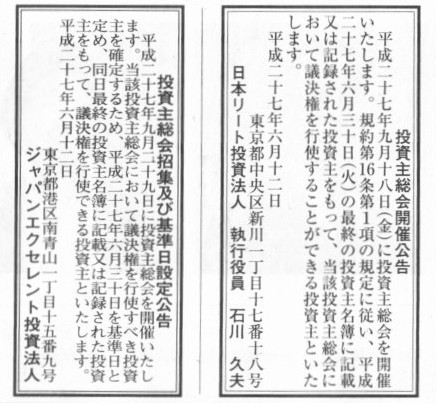 投資主総会開催公告
平成二十七年九月十八日(金)に投資主総会を開催
いたします。規約第16条第1項の規定に従い、平成
二十七年六月三十日(火)の最終の投資主名簿に記載
又は記録された投資主をもって、当該投資主総会に
おいて議決権を行使することができる投資主といた
します。
平成二十七年六月十二日
東京都中央区新川一丁目十七番十八号
日本リート投資法人 執行役員 石川 久夫
投資主総会招集及び基準日設定公告
平成二十七年九月二十九日に投資主総会を開催いたし
ます。当該投資主総会において議決権を行使すべき投資
主を確定するため、平成二十七年六月三十日を基準日と
定め、同日最終の投資主名簿に記載又は記録された投資
主をもって、議決権を行使できる投資主といたします。
平成二十七年六月十二日
東京都港区南青山一丁目十五番九号
ジャパンエクセレント投資法人